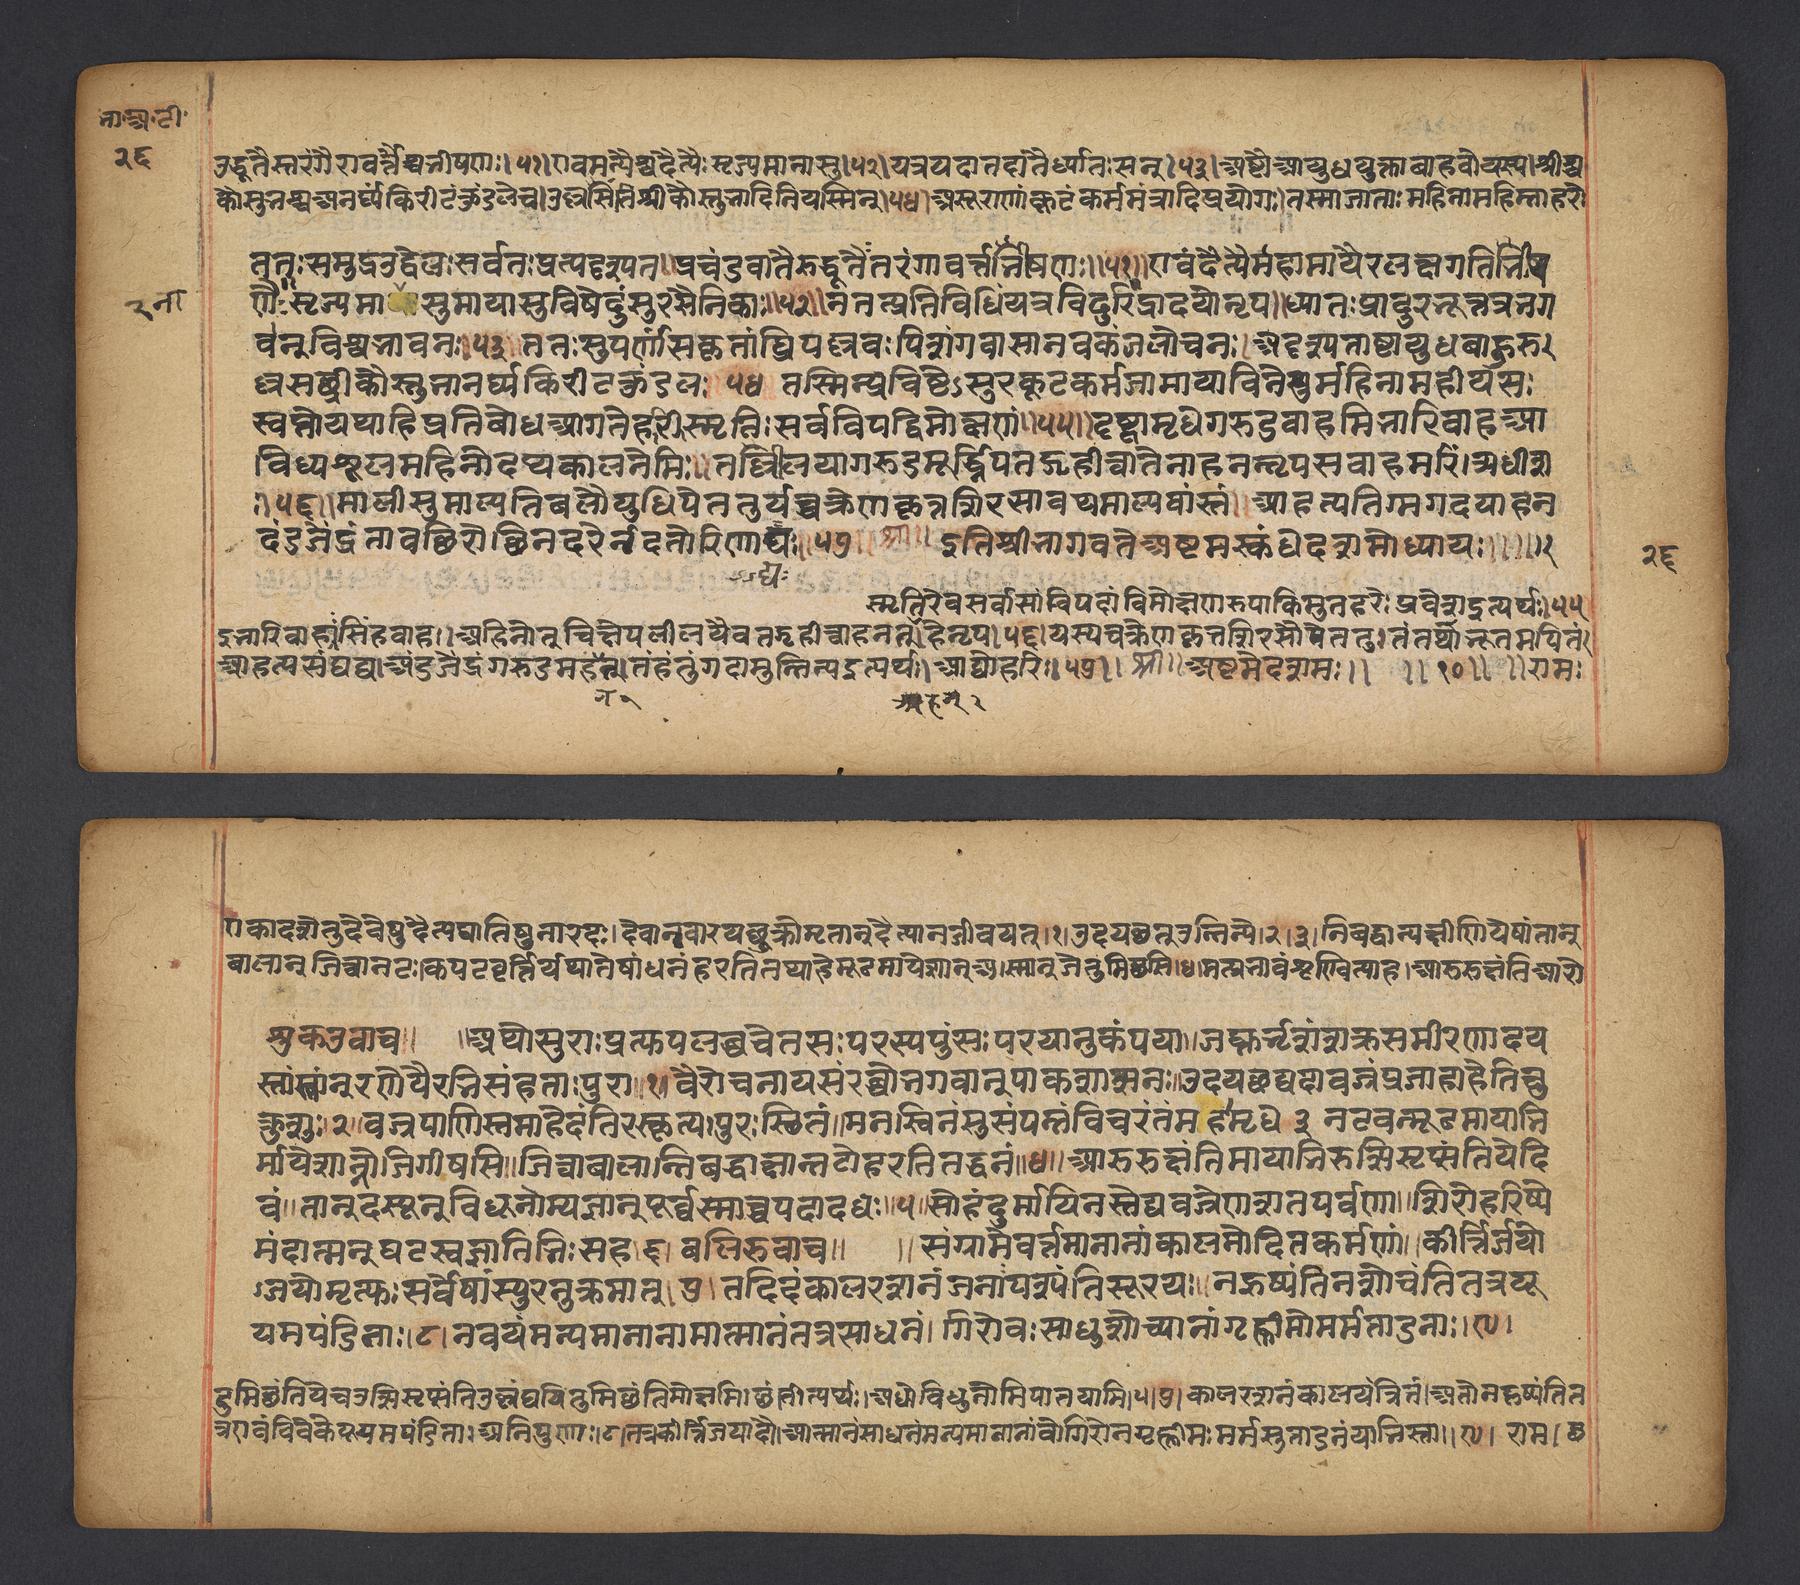 भा॰अ॰टी॰
२६
उद्भूतैस्तरंगैरावर्त्तैश्चभीषणः।५१।एवमन्यैश्चदैत्यैःसृज्यमानासु।५२।यत्रयदातदांतैर्ध्यातःसन्।५३।अष्टौआयुधयुक्ताबाहवोयस्य।श्रीश्च
कौस्तुभश्चअनर्घ्यंकिरीटंकुंडलेच।उल्लसंतिश्रीकौस्तुभादिनियस्मिन्।५४।असुराणांकूटंकर्ममंत्रादिप्रयोगः।तस्माज्जाताःमहिनामहिम्नाहरेः
ततःसमुद्रउद्वेलःसर्वतःप्रत्यदृश्यत॥प्रचंडवातैरुद्धूतैतरंगावर्त्तभीषणः॥५१॥एवंदैत्यैर्महामायैरलक्ष्यगतिभीष
णैः॥सृज्यमा सुमायासुविषेदुःसुरसैनिकाः॥५२॥नतत्प्रतिविधिंयत्रविदुरिंद्रादयोनृप॥ध्यातःप्रादुरभूत्तत्रभग
२ना
वान्विश्वभावनः॥५३॥ततःसुपर्णांसकृतांघ्रिपल्लवःपिशंगवासानवकंजलोचनः।अदृश्यताष्टायुधबाहुरु२
ल्लसच्छ्रीकौस्तुभानर्घ्यकिरीटकुंडलः ५४ तस्मिन्प्रविष्टेऽसुरकूटकर्मजामायाविनेशुर्महिनामहीयसः
स्वप्नोयथाहिप्रतिबोधआगतेहरिस्मृतिःसर्वविपद्विमोक्षणं॥५५॥दृष्ट्वामृधेगरुडवाहमिभारिवाहआ
विध्यशूलमहिनोदथकालनेमिः॥तल्लीलयागरुडमूर्द्ध्निपतद्गृहीत्वातेनाहनन्नृपसवाहमरिं।त्र्यधीश
।५६॥मालीसुमाल्यतिबलौयुधिपेततुर्यच्चक्रेणकृत्तशिरसावथमाल्यवांस्तं॥आहत्यतिग्मगदयाहन
दंडजेंद्रंतावच्छिरोच्छिनदरेर्नदतोरिणाद्यः॥५७ श्री॥ इतिश्रीभागवतेअष्टमस्कंधेदशमोध्यायः॥॥॥२
२६
द्यः
स्मृतिरेवसर्वासांविपदांविमोक्षणरूपाकिमुतहरेःप्रवेशइत्यर्थः।५५
इभारिवाहःसिंहवाहः।अहिनोत्चिक्षेपलीलयैवतद्गृहीत्वाहनत्।हेनृप।५६।यस्यचक्रेणकृत्तशिरसौपेततुः।तंतथाभूतमपितं२
आहत्यसंयद्यदा।अंडजेंद्रंगरुडमहन्।तंहंतुंगदामुन्निन्यइत्यर्थः।आद्योहरिः।५७॥ श्री॥अष्टमेदशमः॥ ॥१०॥ ॥रामः
न् २
अहन्२
एकादशेतुदेवेषुदैत्यघातिषुनारदः।देवान्वारयच्छुक्रोमृतान्दैत्यानजीवयत्।१।उदयच्छतउन्निन्ये।२।३।निबद्धान्यक्षीणियेषांतान्
बालान्जित्वानटःकपटवृत्तिर्यथातेषांधनंहरतितथाहेमूढमायेशान्अस्मान्जेतुंमिच्छसि।४।मत्प्रभावंशृण्वित्याह।आरुरुक्षंतिआरो
शुकउवाच॥ ॥अथोसुराःप्रत्युपलब्धचेतसःपरस्यपुंसःपरयानुकंपया॥जघ्नुर्भृशंशक्रसमीरणादय
स्तांस्तान्रणेयैरभिसंहताःपुरा॥१॥वैरोचनायसंरब्धोभगवान्पाकशासनः॥उदयच्छद्यदावज्रंप्रजाहाहेतिचु
क्रुशुः।२॥वज्रपाणिस्तमाहेदंतिरस्कृत्य।पुरःस्थितं॥मनस्विनंसुसंपन्नंविचरंतंम हामृधे ३ नटवन्मूढमायाभि
र्मायेशान्नोजिगीषसि॥जित्वाबालान्निबद्धाक्षान्नटोहरतितद्धनं॥४॥आरुरुक्षंतिमायाभिरुत्सिसृप्संतियेदि
वं॥तान्दस्यून्विधुनोम्यज्ञान्पूर्वस्माच्चपदादधः॥५॥सोहंदुर्मायिनस्तेद्यवज्रेणशतपर्वणा॥शिरोहरिष्ये
मंदात्मन्घटस्वज्ञातिभिःसह।६।बलिरुवाच॥ ॥संग्रामेवर्त्तमानानांकालचोदितकर्मणां॥कीर्त्तिर्जयो
ऽजयोमृत्युःसर्वेषांस्युरनुक्रमात्।७।तदिदंकालरशनंजनाःपश्यंतिसूरयः॥नहृष्यंतिनशोचंतितत्रयू
यमपंडिताः।८।नवयंमन्यमानानामात्मानंतत्रसाधनं।गिरोवःसाधुशोच्यानांगृह्णीमोमर्मताडनाः।९।
ढुमिच्छंतियेचउत्सिसृप्संतिउल्लंघयितुमिच्छंतिमोक्षमिच्छंतीत्यर्थः।अधोविधुनोमिपातयामि।५।७।कालरशनंकालयंत्रितं।अतोनहृष्यंतित
त्रएवंविवेकेयूयमपंडिताः।अनिपुणाः।८।तत्रकीर्त्तिजयादौ।आत्मानंसाधनंमन्यमानानांवोगिरोनगृह्णीमःमर्मसुताडनंयाभिस्ताः।९। राम।छ